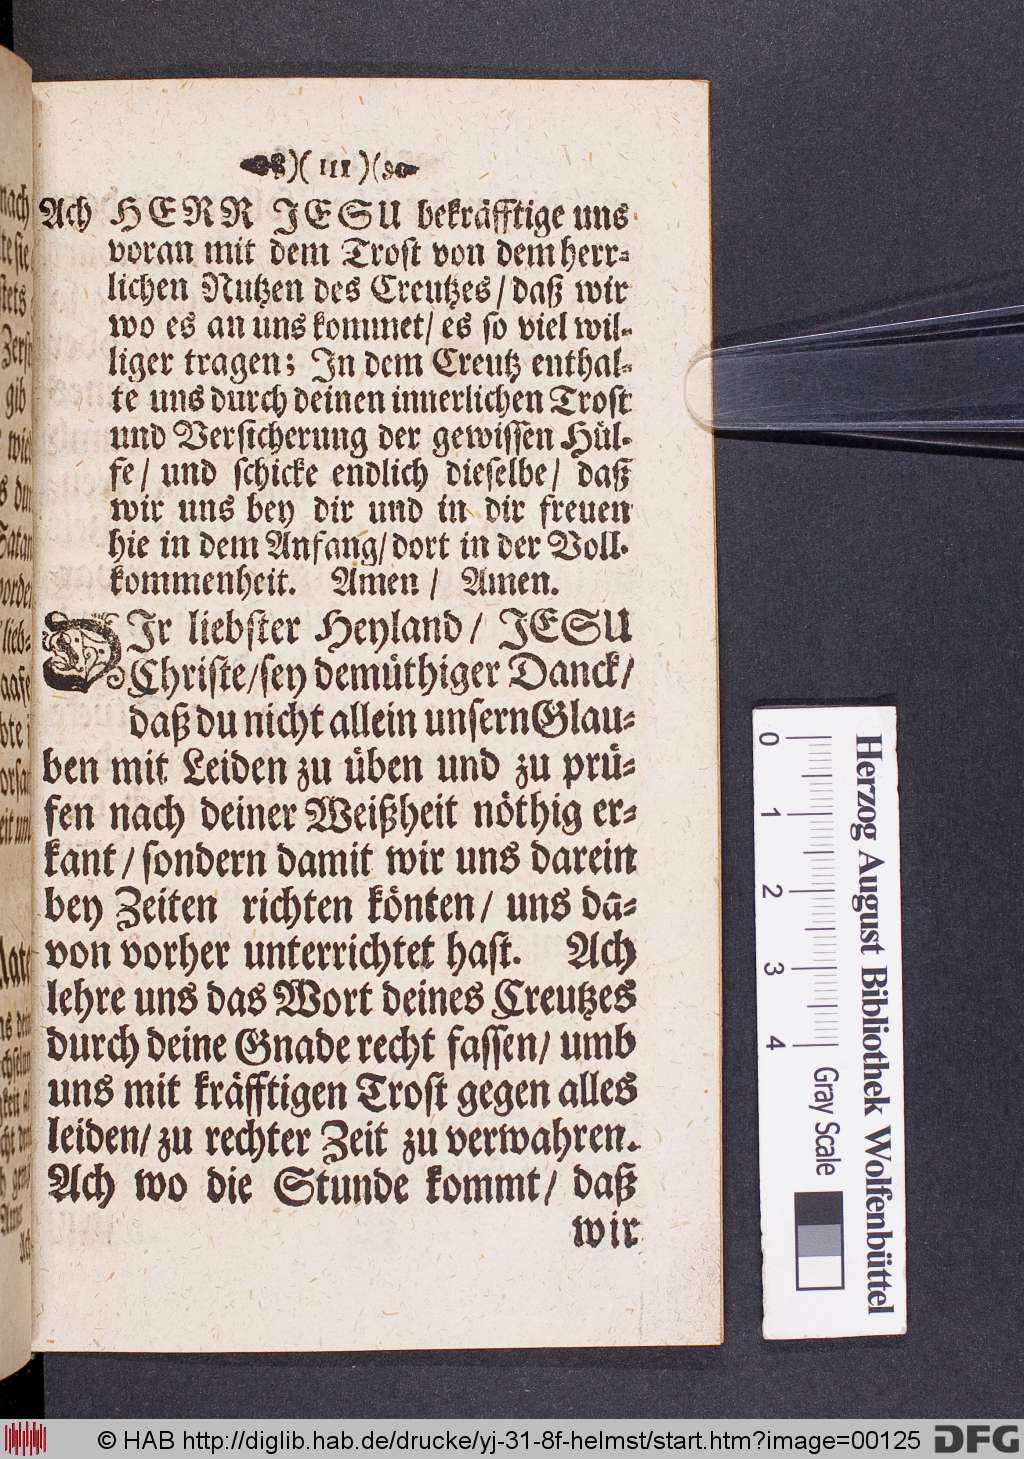 )( 111 )(
Ach HERR JESU bekräfftige uns
voran mit dem Trost von dem herr-
lichen Nutzen des Creutzes / daß wir
wo es an uns kommet / es so viel wil-
liger tragen; In dem Creutz enthal-
te uns durch deinen innerlichen Trost
und Versicherung der gewissen Hül-
fe / und schicke endlich dieselbe / daß
wir uns bey dir und in dir freuen
hie in dem Anfang / dort in der Voll-
kommenheit. Amen / Amen.
DIr liebster Heyland / JESU
Christe / sey demüthiger Danck /
daß du nicht allein unsern Glau-
ben mit Leiden zu üben und zu prü-
fen nach deiner Weißheit nöthig er-
kant / sondern damit wir uns darein
bey Zeiten richten könten / uns da-
von vorher unterrichtet hast. Ach
lehre uns das Wort deines Creutzes
durch deine Gnade recht fassen / umb
uns mit kräfftigen Trost gegen alles
leiden / zu rechter Zeit zu verwahren.
Ach wo die Stunde kommt / daß
wir
nach
te sie
stets
gib
Satan
lieb-
Herzog August Bibliothek Wolfenbüttel
0 1 2 3 4 Gray Scale
© HAB http://diglib.hab.de/drucke/yj-31-8f-helmst/start.htm?image=00125
DFG